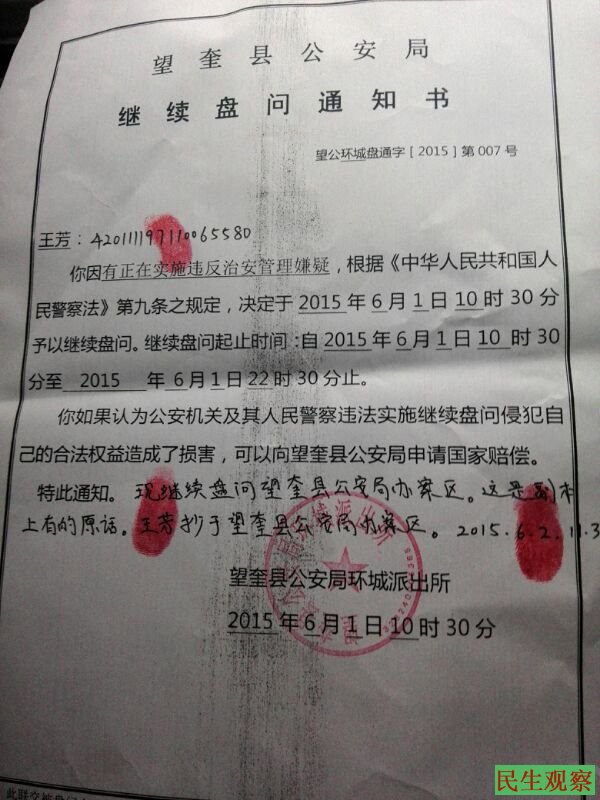 望奎县公安局
继续盘问通知书
望公环城盘通字[2015]第007号
王芳:420111197110065580
你因有正在实施违反治安管理嫌疑,根据《中华人民共和国人
民警察法》第九条之规定,决定于2015年6月1日10时30分
予以继续盘问。继续盘问起止时间:自2015年6月1日10时30
分至 2015 年6月1日22时30分止。
你如果认为公安机关及其人民警察违法实施继续盘问侵犯自
己的合法权益造成了损害,可以向望奎县公安局申请国家赔偿。
特此通知。现继续盘问望奎县公安局办案区。这是副本
上有的原话。王芳抄于望奎县公安局办案区。2015.6.2.11.3
望奎县公安局环城派出所
2015年6月1日10时30分
民生观察